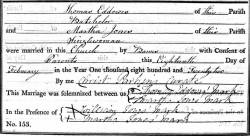 Thomas Eddowes of this Parish
Batchelor
and Martha Jones of this Parish
Singlewoman
were married in this Church by Banns with Consent of
Parents this Eighteenth Day of
February in the Year One thousand eight hundred and Twenty two
By me
This Marriage was solemnized between us
Thomas Eddowes mark
Martha Jones mark
In the Presence of
William Jones mark
Martha Jones mark
No. 153.